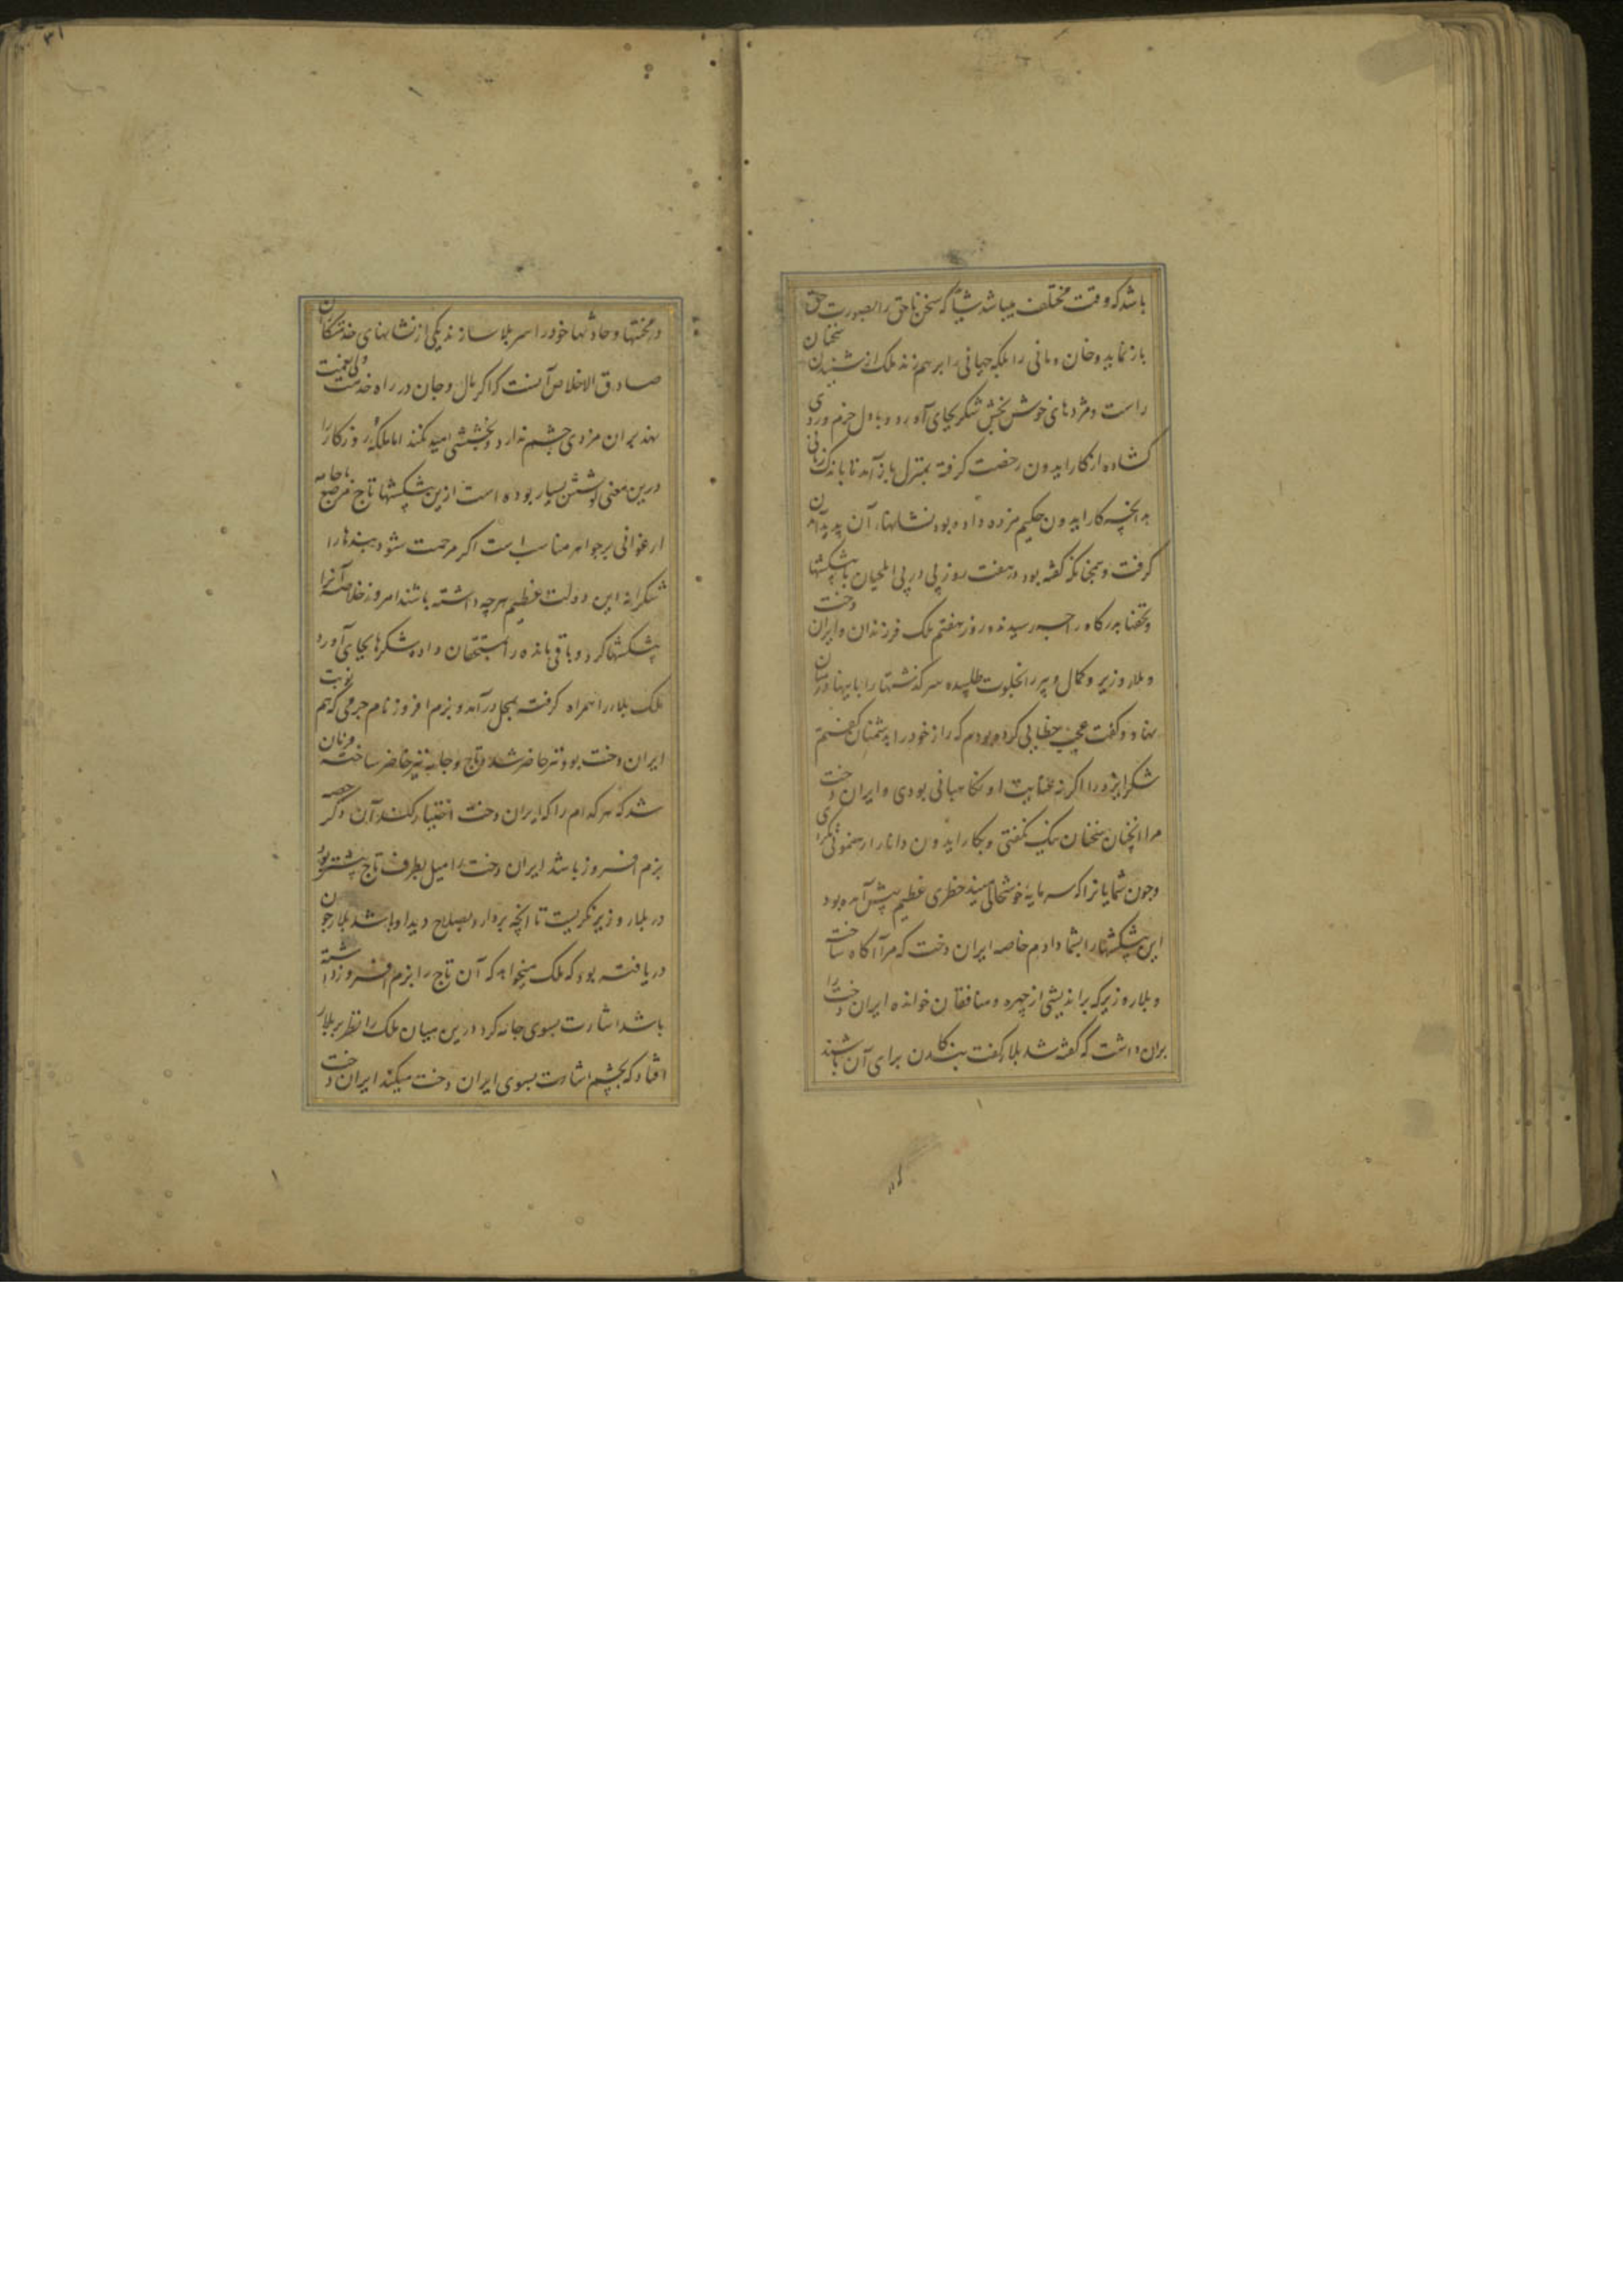 باشد که وقت مختلف میباشد شیا که سخن ناحق را بصورت حق
باز نماید و خان و مانی را بلکه جهانی را برهم زند ملک از شنیدن سخنان
راست و مژدهای خوش بخش شکر بجای آورد و با دل خرم و روی
کشاده از کارایدون رخصت کرفته بمنزل باز آمد تا باندک زمانی
بدانچه کارایدون حکیم مژده داده بود نشانهاء آن پدید آمدن
کرفت و همچنانکه کفته بود در هفت روز پی در پی ایلچیان با پیشکشها
و تحفها بدرکاه راجه رسیدند و روز هفتم ملک فرزندان و ایران دخت
و بلار وزیر و کمال دبیر را بخلوت طلبیده سرکذشتها را با ایشان در میان
نهاد و کفت عجب خطایی کرده بودم که راز خود را بدشمنان کفتم
شکر ایزد را اکر نه عنایت او نکاهبانی بودی و ایران دخت
مرا آنچنان سخنان نیک نکفتی و بکارایدون دانا را رهنمونی نکردی
و چون شمایان را که سرمایهٔ خوشحالی منید خطری عظیم پیش آمده بود
این پیشکشها را بشما دادم خاصه ایران دخت که مرا آکاه ساخت
و بلار وزیر که براندیشی از چهره منافقان خوانده ایران دخت را
بران داشت که کفته شد بلار کفت بندکان برای آن باشند
در محنتها و حادثها خود را سپر بلا سازند یکی از نشانهای خدمتکاران
صادق الاخلاص آنست که اکر مال و جان در راه خدمت ولی نعمت
نهد بران مزدی چشم ندارد و بخششی امید نکند اما ملکهٔ روزکار را
درین معنی کوشش بسیار بوده است ازین پیشکشها تاج مرصع یا جامه
ارغوانی پر جواهر مناسب است اکر مرحمت شود بندها را
شکرانه این دولت عظیم هرچه داشته باشند امروز خلاصه آنرا
پیشکشها کرد و باقی مانده را بمستحقان داده شکرها بجای آورد
ملک بلار را همراه کرفته بمحل درآمد و بزم افروز نام حرمی که هم نوبت
ایران دخت بود نیز حاضر شد و تاج و جامه نیز حاضر ساخته فرمان
شد که هر کدام را که ایران دخت اختیار کند آن دکر حصه
بزم افروز باشد ایران دخت را میل بطرف تاج بیشتر بود
در بلار وزیر نکریست تا انچه بردارد بصلاح دید او باشد بلار چون
دریافته بود که ملک میخواهد که آن تاج را بزم افروز داشته
باشد اشارت بسوی جامه کرد درین میان ملک را نظر بر بلار
افتاد که بچشم اشارت بسوی ایران دخت میکند ایران دخت